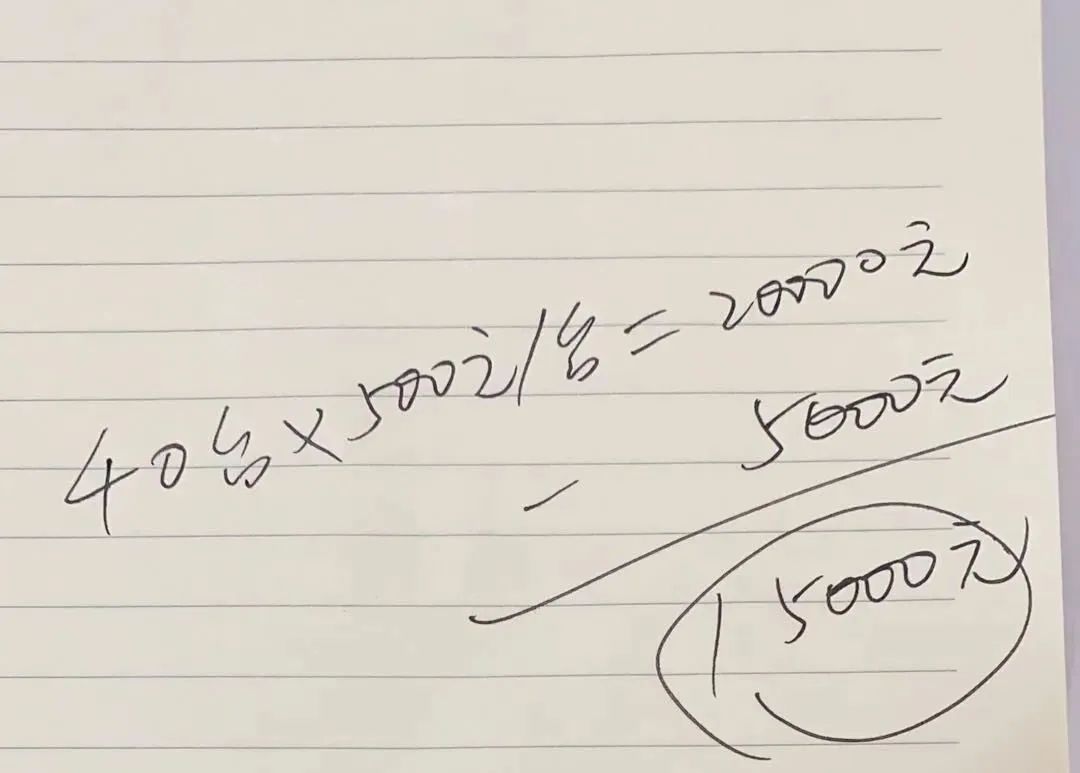 40名×500元/名=20000元
- 5000元
15000元